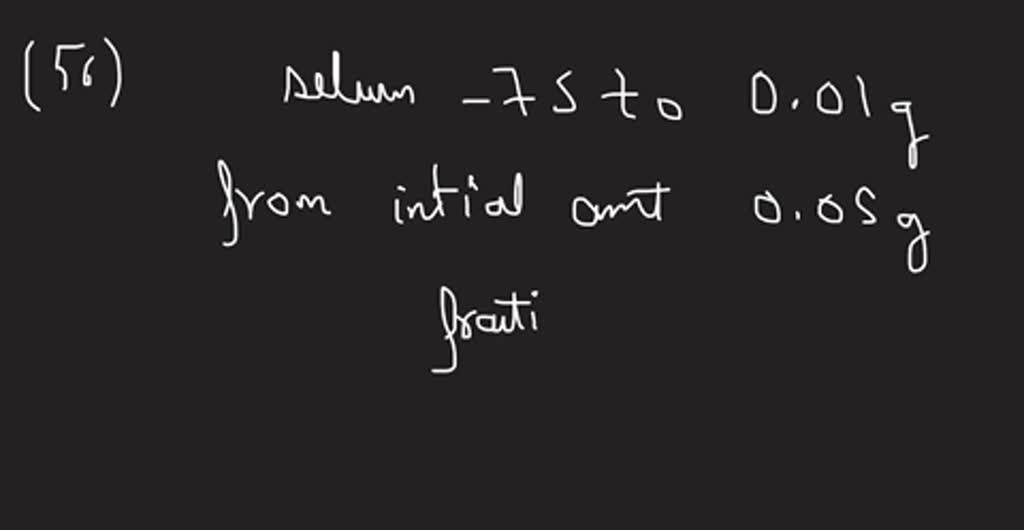 (56) selum -75 to 0.01g
from intial amt 0.05g
frauti